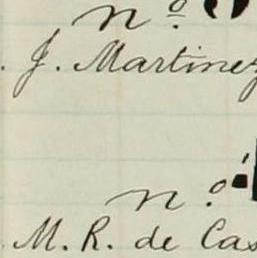 Nº
. J. Martinez
Nº
M. R. de Cas